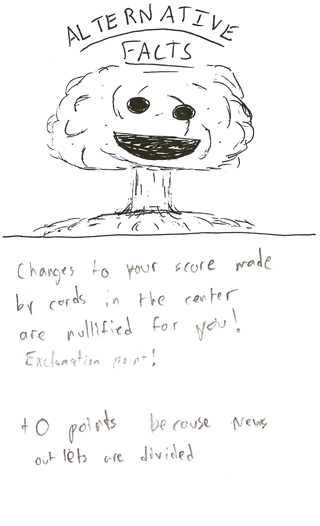 ALTERNATIVE
FACTS
Changes to your score made
by cards in the center
are nullified for you!
Exclamation point!
+0 points because news
outlets are divided